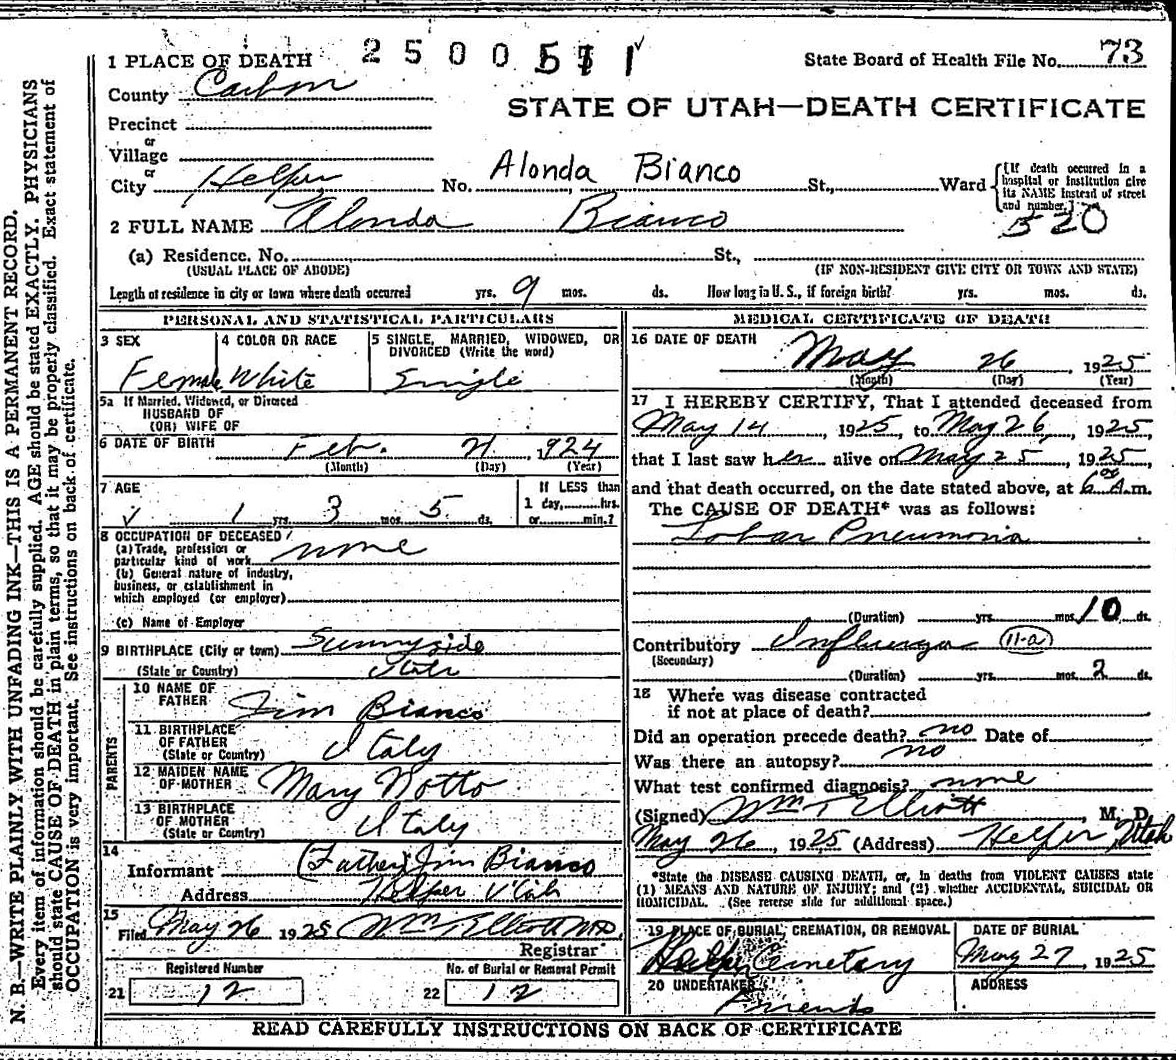 1 PLACE OF DEATH 2500511 State Board of Health File No. 73
County Carbon
STATE OF UTAH—DEATH CERTIFICATE
Precinct
or
Village
or
City Helper No. Alonda Bianco St., Ward {If death occurred in a hospital or institution give its NAME instead of street and number.}
520
2 FULL NAME Alonda Bianco
(a) Residence. No. St.,
(USUAL PLACE OF ABODE) (IF NON-RESIDENT GIVE CITY OR TOWN AND STATE)
Length of residence in city or town where death occurred yrs. 9 mos. ds. How long in U. S., if foreign birth? yrs. mos. ds.
PERSONAL AND STATISTICAL PARTICULARS
3 SEX 4 COLOR OR RACE 5 SINGLE, MARRIED, WIDOWED, OR
DIVORCED (Write the word)
Female White Single
5a If Married, Widowed, or Divorced
HUSBAND OF
(OR) WIFE OF
6 DATE OF BIRTH Feb. 21 1924
(Month) (Day) (Year)
7 AGE If LESS than
1 day, hrs.
1 yrs. 3 mos. 5 ds. or min.?
8 OCCUPATION OF DECEASED
(a) Trade, profession or
particular kind of work none
(b) General nature of industry,
business, or establishment in
which employed (or employer)
(c) Name of Employer
9 BIRTHPLACE (City or town) Sunnyside
(State or Country) Utah
PARENTS
10 NAME OF
FATHER Jim Bianco
11 BIRTHPLACE
OF FATHER
(State or Country) Italy
12 MAIDEN NAME
OF MOTHER Mary Notto
13 BIRTHPLACE
OF MOTHER
(State or Country) Italy
14
Informant (Father) Jim Bianco
Address Helper Utah
15
Filed May 26 1925 Wm T Elliott MD
Registrar
Registered Number No. of Burial or Removal Permit
21 12 22 12
MEDICAL CERTIFICATE OF DEATH
16 DATE OF DEATH
May 26 1925
(Month) (Day) (Year)
17 I HEREBY CERTIFY, That I attended deceased from
May 14, 1925, to May 26, 1925,
that I last saw her alive on May 25, 1925,
and that death occurred, on the date stated above, at 6 00 A.m.
The CAUSE OF DEATH* was as follows:
Lobar Pneumonia
(Duration) yrs. mos. 10 ds.
Contributory Influenza 11-a
(Secondary)
(Duration) yrs. mos. 2 ds.
18 Where was disease contracted
if not at place of death?
Did an operation precede death? no Date of
Was there an autopsy? no
What test confirmed diagnosis? none
(Signed) Wm T Elliott M. D.
May 26 1925 (Address) Helper Utah
*State the DISEASE CAUSING DEATH, or, in deaths from VIOLENT CAUSES state
(1) MEANS AND NATURE OF INJURY; and (2) whether ACCIDENTAL, SUICIDAL OR
HOMICIDAL. (See reverse side for additional space.)
19 PLACE OF BURIAL, CREMATION, OR REMOVAL DATE OF BURIAL
Helper Cemetery May 27, 1925
20 UNDERTAKER ADDRESS
READ CAREFULLY INSTRUCTIONS ON BACK OF CERTIFICATE
N. B.—WRITE PLAINLY WITH UNFADING INK—THIS IS A PERMANENT RECORD.
Every item of information should be carefully supplied. AGE should be stated EXACTLY. PHYSICIANS
should state CAUSE OF DEATH in plain terms, so that it may be properly classified. Exact statement of
OCCUPATION is very important. See instructions on back of certificate.